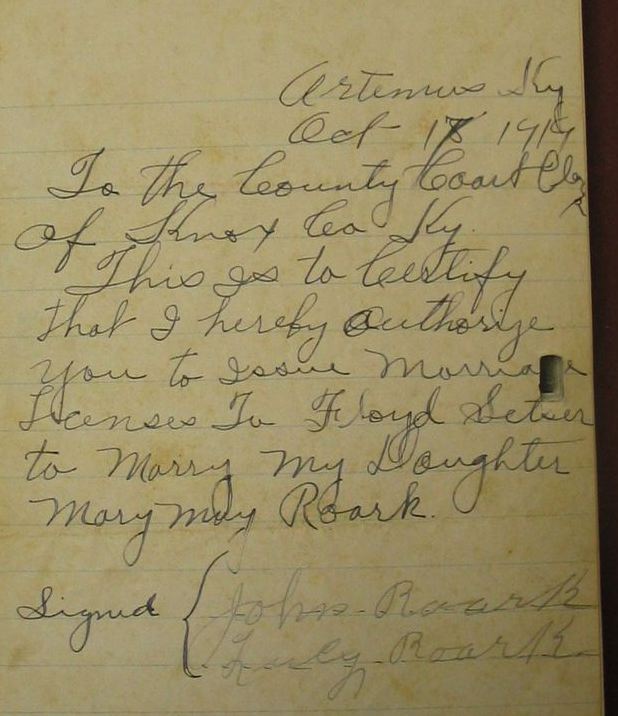 Artemus Ky
Oct 18 1919
To the County Court Clerk
of Knox Co Ky.
This is to Certify
that I hereby Authorize
you to Issue Marriage
Licenses To Floyd Setser
to Marry My Daughter
Mary May Roark.
Signed John Roark
Lucy Roark